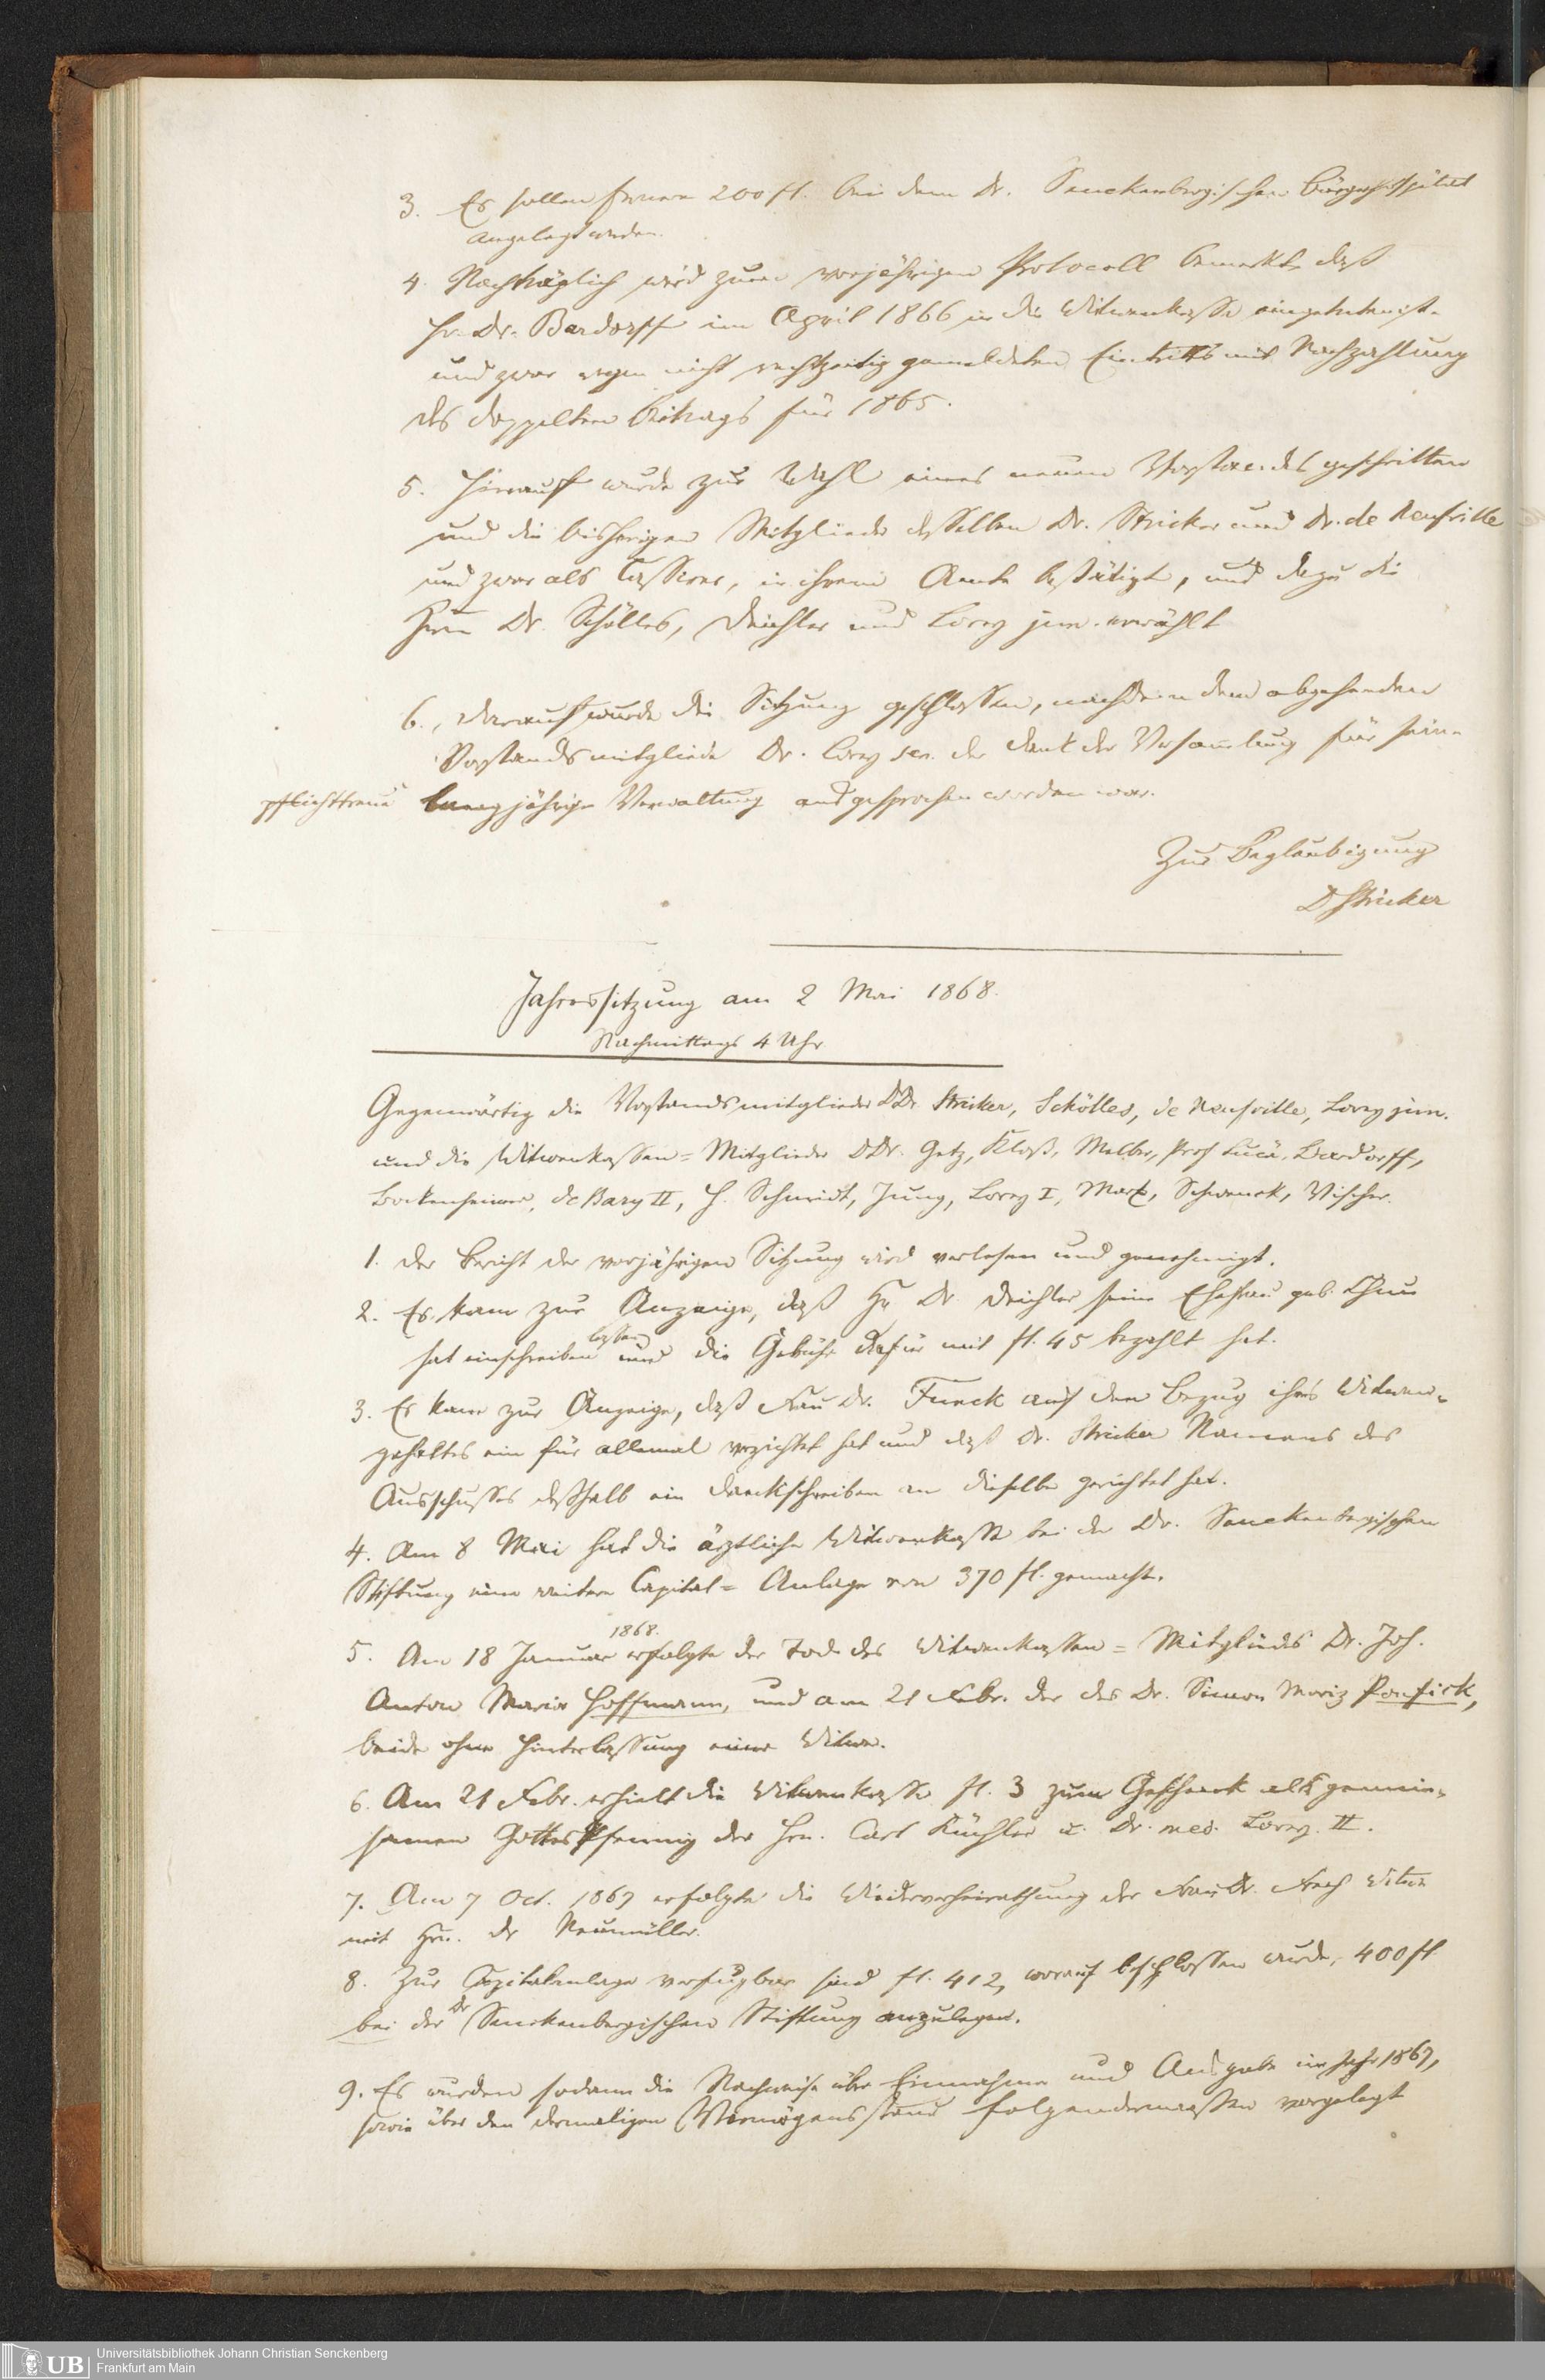 3. Es sollen ferner 200 fl. bei dem Dr. Senckenbergischen Bürgerhospital
angelegt werden.
4. Nachträglich wird zum vorjährigen Protocoll bemerkt, daß
Hr. Dr. Bardorff im April 1866 in die Witwenkasse eingetreten ist
und zwar wegen nicht rechtzeitig gemeldeten Eintritts mit Nachzahlung
des doppelten Beitrags für 1865.
5. Hierauf wurde zur Wahl eines neuen Vorstandes geschritten
und die bisherigen Mitglieder desselben Dr. Stricker und Dr. de Neufville
und zwar als Cassierer, in ihrem Amte bestätigt, und dazu die
Herrn Dr. Schölles, Deichler und Lorey jun. erwählt
6., Darauf wurde die Sitzung geschlossen, nachdem dem abgehenden
Vorstandsmitgliede Dr. Lorey sen. der Dank der Versammlung für seine
pflichttreue langjährige Verwaltung ausgesprochen worden war.
Zur Beglaubigung
D Stricker
Jahressitzung am 2 Mai 1868.
Nachmittags 4 Uhr
Gegenwärtig die Vorstandsmitglieder DDr. Stricker, Schölles, de Neufville, Lorey jun.
und die Witwenkassen=Mitglieder DDr. Getz, Kloß, Melber, Prof Lucä, Bardorff,
Bockenheimer, de Bary II, H. Schmidt, Jung, Lorey I, Marx, Schwenck, Vischer.
1. Der Bericht der vorjährigen Sitzung wird verlesen und genehmigt.
2. Es kam zur Anzeige, daß Hr Dr. Deichler seine Ehefrau geb.
hat einschreiben lassen und die Gebühr dafür mit fl. 45 bezahlt hat.
3. Es kam zur Anzeige, daß Frau Dr. Funck auf den Bezug ihres Witwen-
gehaltes ein für allemal verzichtet hat und daß Dr. Stricker Namens des
Ausschusses deßhalb ein Dankschreiben an dieselbe gerichtet hat.
4. Am 8 Mai hat die ärztliche Witwenkasse bei der Dr. Senckenbergischen
Stiftung eine weitere Capital=Anlage von 370 fl. gemacht.
5. Am 18 Januar 1868. erfolgte der Tod des Witwenkassen=Mitglieds Dr. Joh.
Anton Maria Hoffmann, und am 21 Febr. der des Dr. Simon Moriz Ponfick,
beide ohne Hinterlassung einer Witwe.
6. Am 21 Febr. erhielt die Witwenkasse fl. 3 zum Geschenk als gemein-
samen Gottespfennig der Hrn. Carl Küchler u. Dr. med. Lorey II.
7. Am 7 Oct. 1867 erfolgte die Wiederverheirathung der Frau Dr. Witwe
mit Hrn. Dr Neumüller.
8. Zur Capitalanlage verfügbar sind fl. 412, worauf beschlossen wurde, 400 fl
bei der Dr Senckenbergischen Stiftung anzulegen.
9. Es wurden sodann die Nachweise über Einnahme und Ausgabe im Jahr 1867,
sowie über den dermaligen Vermögensstand folgendermassen vorgelegt
UB
Universitätsbibliothek Johann Christian Senckenberg
Frankfurt am Main